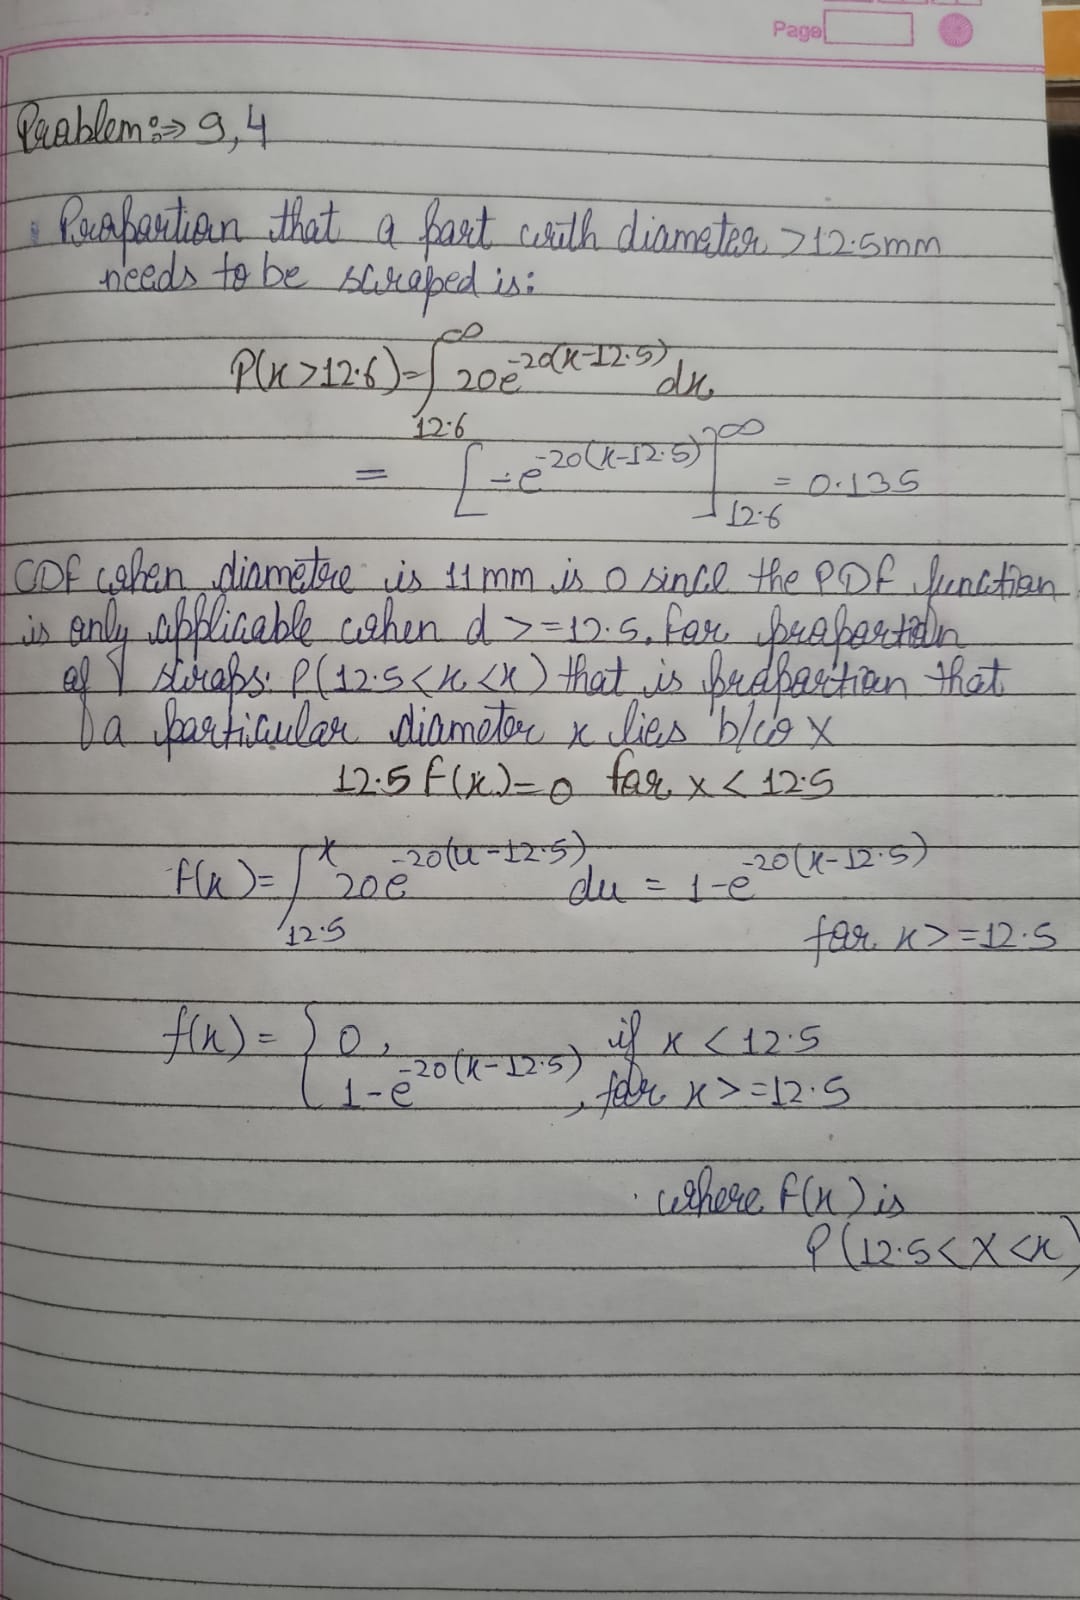 Page
Problem:⇒ 9,4
Proportion that a part with diameter >12.5mm
needs to be scraped is:
P(x >12.6)=∫₁₂.₆^∞ 20e^-20(x-12.5) dx
= [-e^-20(x-12.5)]₁₂.₆^∞ = 0.135
CDF when diametre is 11mm is 0 since the PDF function
is only applicable when d >=12.5. For proportion
of scraps: P(12.5<x<x) that is proportion that
a particular diameter x lies b/w x
12.5 F(x)=0 for x < 12.5
f(x)= ∫₁₂.₅^x 20e^-20(u-12.5) du = 1-e^-20(x-12.5)
for x >=12.5
f(x)= { 0, if x < 12.5
1-e^-20(x-12.5), for x >=12.5
where F(x) is
P(12.5< X <x)